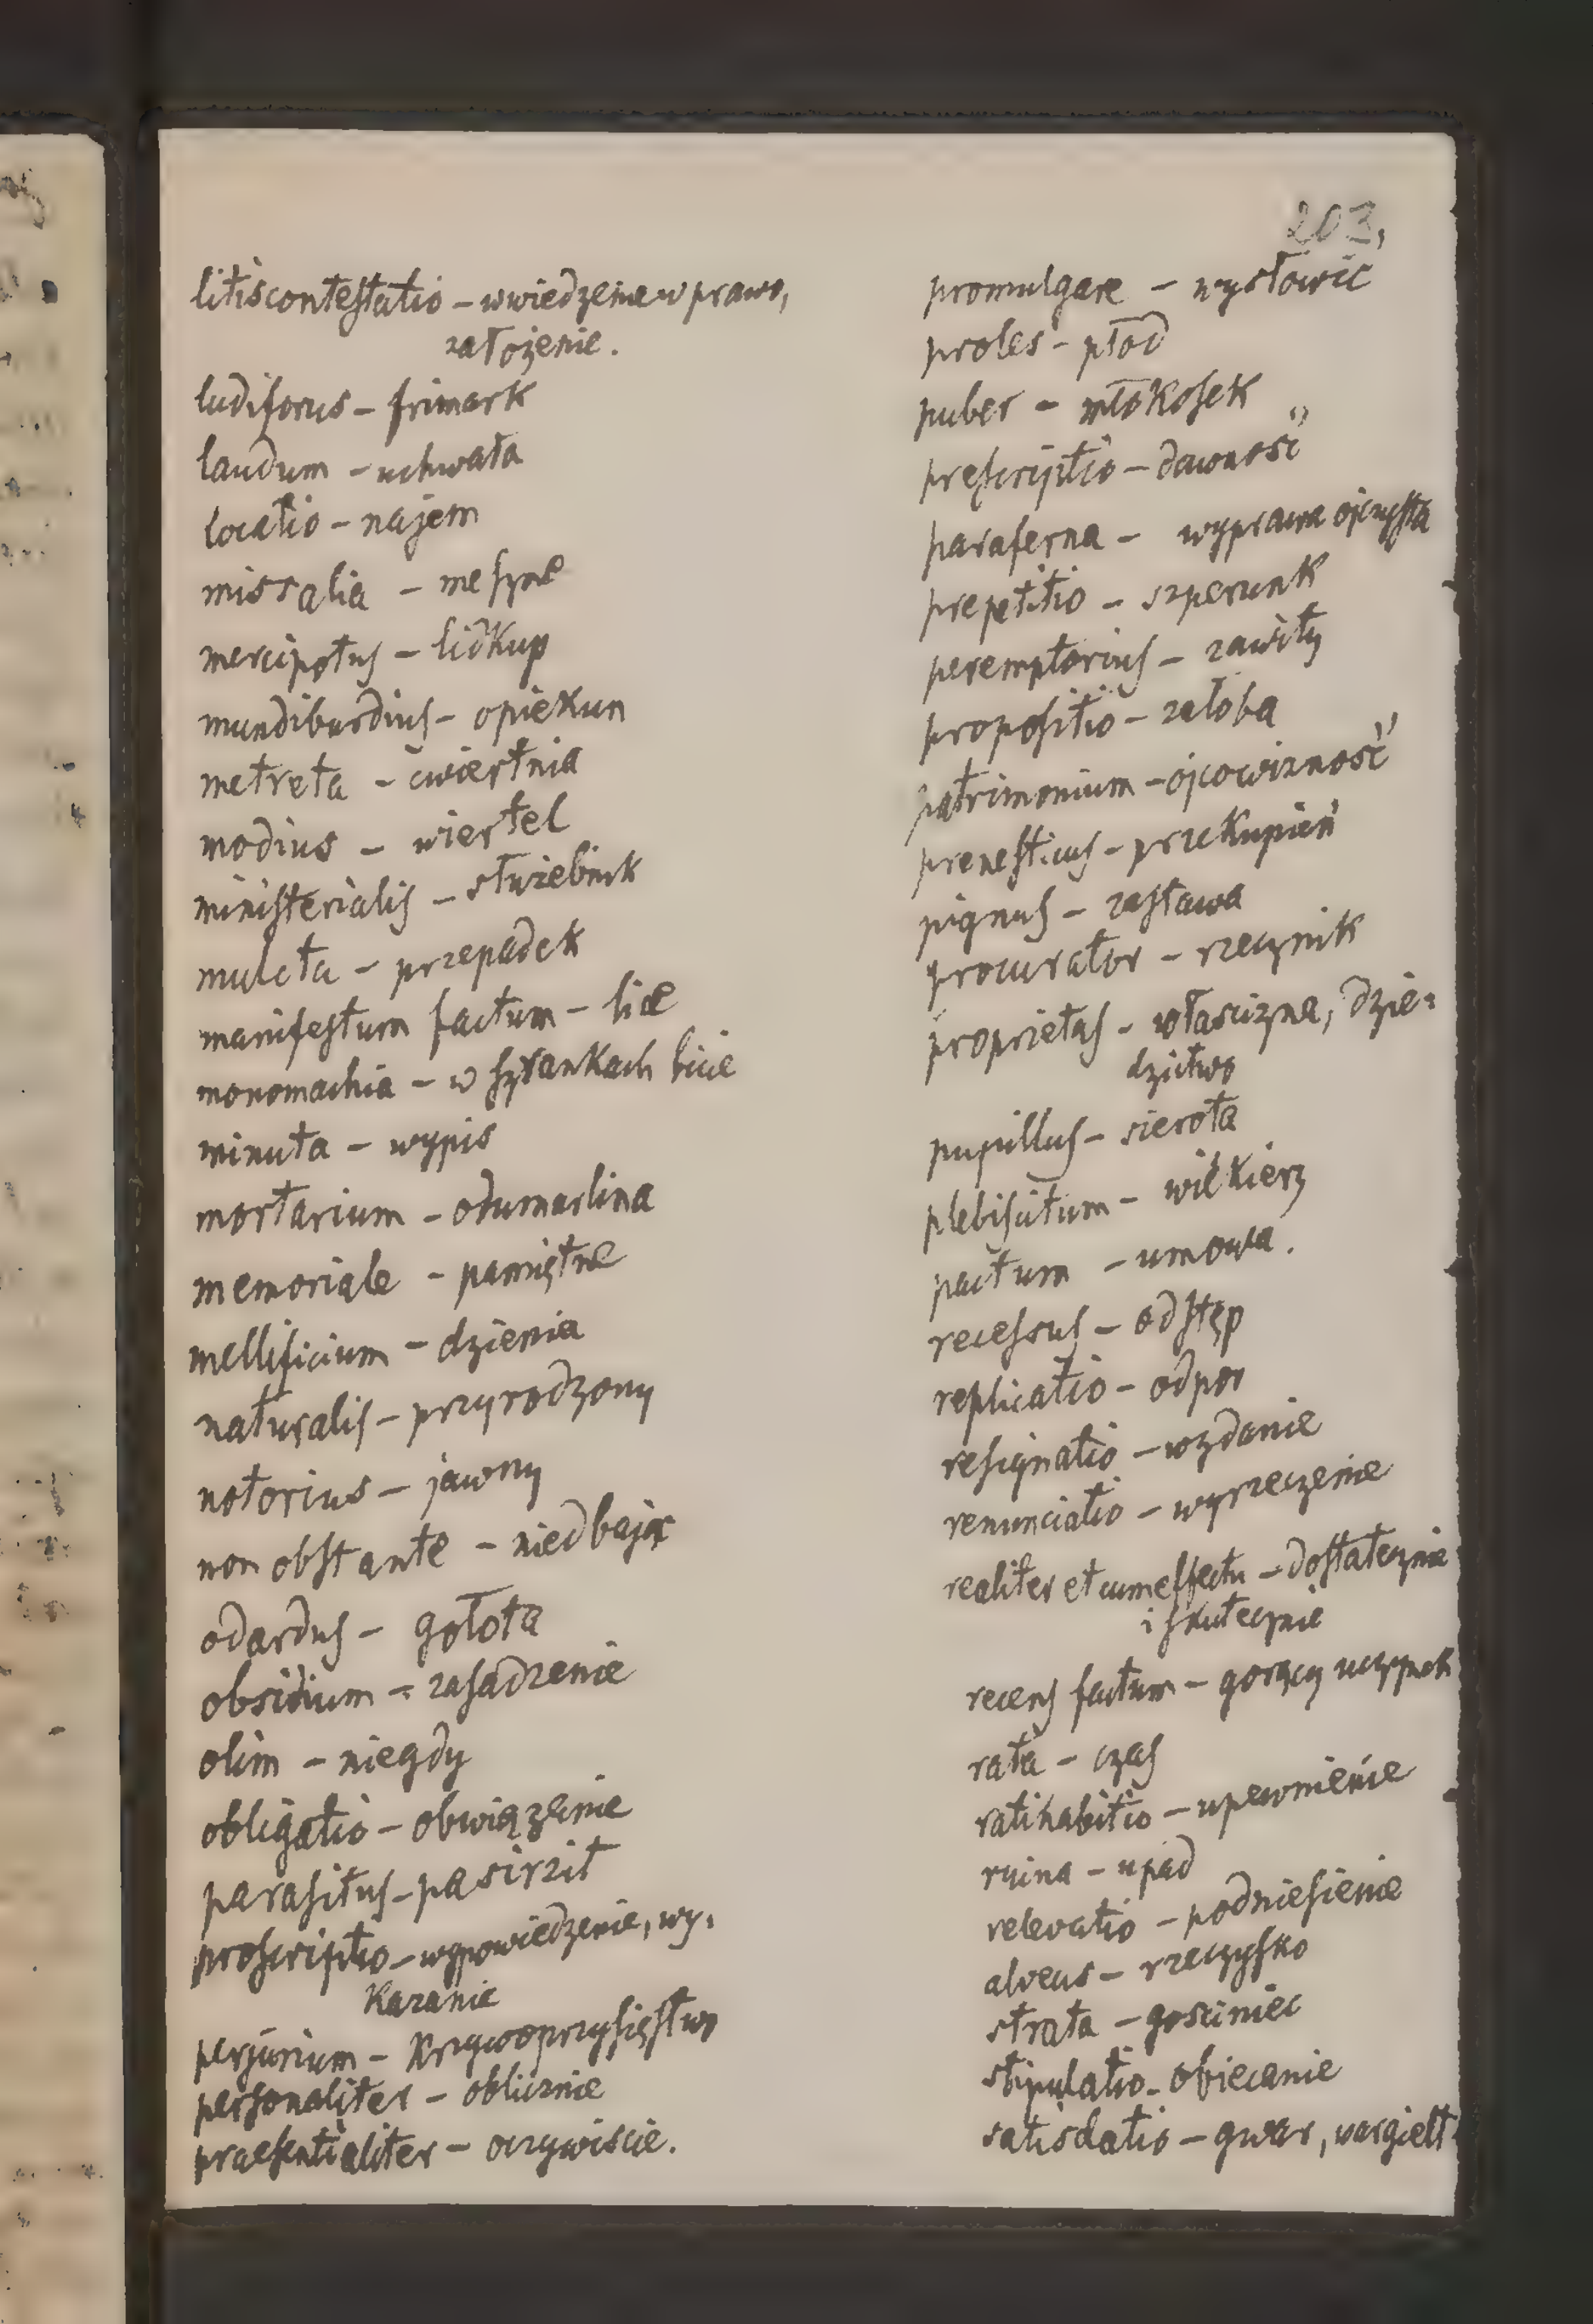 203,
litiscontestatio – wwiedzenie w prawo,
założenie.
ludiforus – frimark
laudum – uchwała
locatio – najem
missalia – meszne
mercipotus – lidkup
mundiburdius – opiekun
metreta – ćwiertnia
modius – wiertel
ministerialis – służebnik
mulcta – przepadek
manifestum factum – lice
monomachia – w szrankach bicie
minuta – wypis
mortarium – odumarlina
memoriale – pamiętne
mellificium – dzienia
naturalis – przyrodzony
notorius – jawny
non obstante – niedbając
odardus – gołota
obsidium – zasadzenie
olim – niegdy
obligatio – obwiązenie
parasitus – pasirzit
proscriptio – wypowiedzenie, wy-
kazanie
perjurium – krzywoprzysięstwo
personaliter – oblicznie
praesentialiter – oczywiscie.
promulgare – wysłowić
proles – płod
puber – młokosek
prescriptio – dawność
paraferna – wyprawa ojczysta
prepetitio – szperunk
peremptorius – zawity
propositio – załoba
patrimonium – ojcowizność
prenesticus – przekupień
pignus – zastawa
procurator – rzecznik
proprietas – włascizna, dzie-
dzictwo
pupillus – sierota
plebiscitum – wilkierz
pactum – umowa.
recessus – odstęp
replicatio – odpor
resignatio – wzdanie
renunciatio – wyrzeczenie
realiter et cum effectu – dostatecznie
i skutecznie
recens factum – gorący uczynek
rata – czas
ratihabitio – upewnienie
ruina – upad
relevatio – podniesienie
alveus – rzeczysko
strata – gosciniec
stipulatio – obiecanie
satisdatio – gwar, wargielt